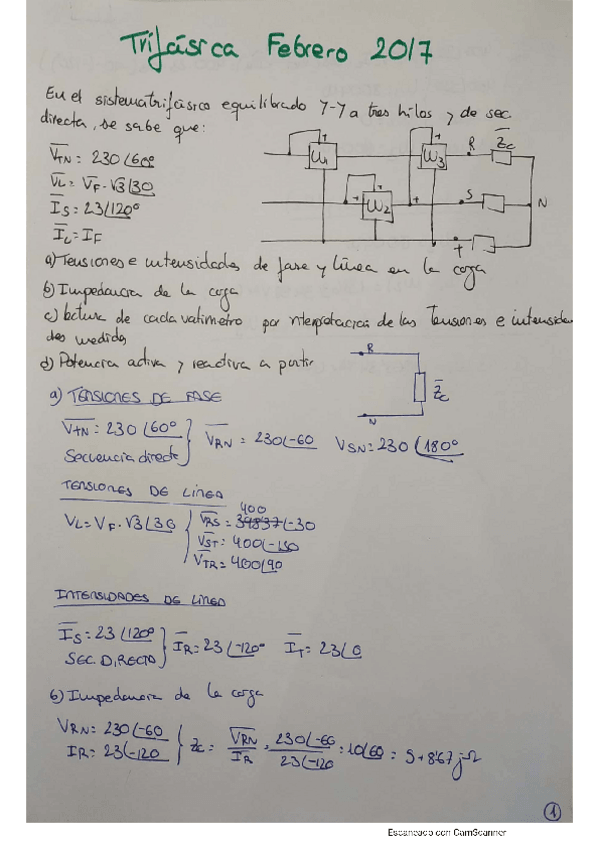 Trifásica Febrero 2017
En el sistema trifásico equilibrado Y-Y a tres hilos y de sec.
directa, se sabe que:
V̅TN = 230∠60º
V̅L = V̅F·√3∠30
I̅S = 23∠120º
I̅L = I̅F
W1
W2
W3
R
Z̅c
S
N
T
a) Tensiones e intensidades de fase y línea en la carga
b) Impedancia de la carga
c) lectura de cada vatímetro por interpretación de las Tensiones e intensida
des medidas
d) Potencia activa y reactiva a partir
R
Z̅c
N
a) TENSIONES DE FASE
V̅TN = 230∠60º
Secuencia directa
V̅RN = 230∠-60
VSN = 230∠180º
TENSIONES DE LÍNEA
VL = VF·√3∠30
400
V̅RS = 398'37∠-30
V̅ST = 400∠-150
V̅TR = 400∠90
INTENSIDADES DE LÍNEA
I̅S = 23∠120º
SEC. DIRECTO
I̅R = 23∠-120º I̅T = 23∠0
b) Impedancia de la carga
VRN = 230∠-60
IR = 23∠-120
Zc = V̅RN / I̅R = 230∠-60 / 23∠-120 = 10∠60 = 5+8'67j Ω
1
Escaneado con CamScanner